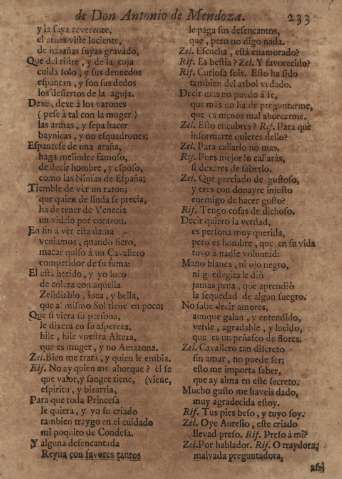 de Don Antonio de Mendoza. 233
y la saya reverenze,
el arnés viste luciente,
de hazañas suyas gravado,
Que del ristre, y de la cuja
cuida solo; y sus denuedos
espantan, y son sus dedos
los desiertos de la aguja.
Dexe, deve à los varones
( pese à tal con la muger )
las armas, y sepa hacer
baynicas, y no esquadrones:
Espantese de una araña,
haga melindre famoso,
de decir hombre, y esposo,
como las Niñas de España;
Tiemble de ver un raton,
que quien de linda se precia,
ha de tener de Venecia
un vidrio por corazon.
En fin à ver esta dama
veniamos, quando fiero,
macar quiso à un Cavallero
competidor de su fama:
El està herido, y yo loco
de colera con aquella
Zelidiablo, loca, y bella,
que al mismo Sol tiene en poco;
Que si viera su persona,
le dixera en su aspereza,
hile, hile vuestra Alteza,
que es muger, y no Amazona.
Zel. Bien me trata, y quien le embia.
Rif. No ay quien me ahorque? èl se
que valor, y sangre tiene, (viene,
espirita, y bizarria,
Para que toda Princesa
le quiera, y yo su criado
tambien traygo en el cuidado
mi poquito de Condesa.
Y alguna desencantada
Reyna con favores tantos
le paga sus desencantos,
que, pero no digo nada.
Zel. Escucha, està enamorado?
Rif. Ea bestia? Zel. Y favorecido?
Rif. Curiosa sois. Esto ha sido
tambien del arbol vedado.
Decir quanto puedo à fe,
que mas no ha de preguntarme,
que es menos mal ahorcarme.
Zel. Esto encubres? Rif. Para què
informarte quieres dello?
Zel. Para callarlo no mas.
Rif. Pues mejor lo callaràs,
si dexares de saberlo.
Zel. Que preciado de gustoso,
y eres con donayre injusto
enemigo de hacer gusto?
Rif. Tengo cosas de dichoso.
Decir quiero la verdad,
es persona muy querida,
pero es hombre, que en su vida
tuvo à nadie voluntad:
Mano blanca, ni ojo negro,
jamàs pena, que aprendiò
la sequedad de algun suegro.
No sabe decir amores,
aunque galan, y entendido,
verde, agradable, y lucido,
que es un peñasco de flores.
Zel. Cavallero tan discreto
sin amar, no puede ser;
esto me importa saber,
que ay alma en este secreto.
Mucho gusto me haveis dado,
muy agradecida estoy.
Rif. Tus pies beso, y tuyo soy.
Zel. Oye Aurelio, este criado
llevad preso. Rif. Preso à mi?
Zel. Por hablador. Rif. O traydora,
malvada preguntadora,
assi